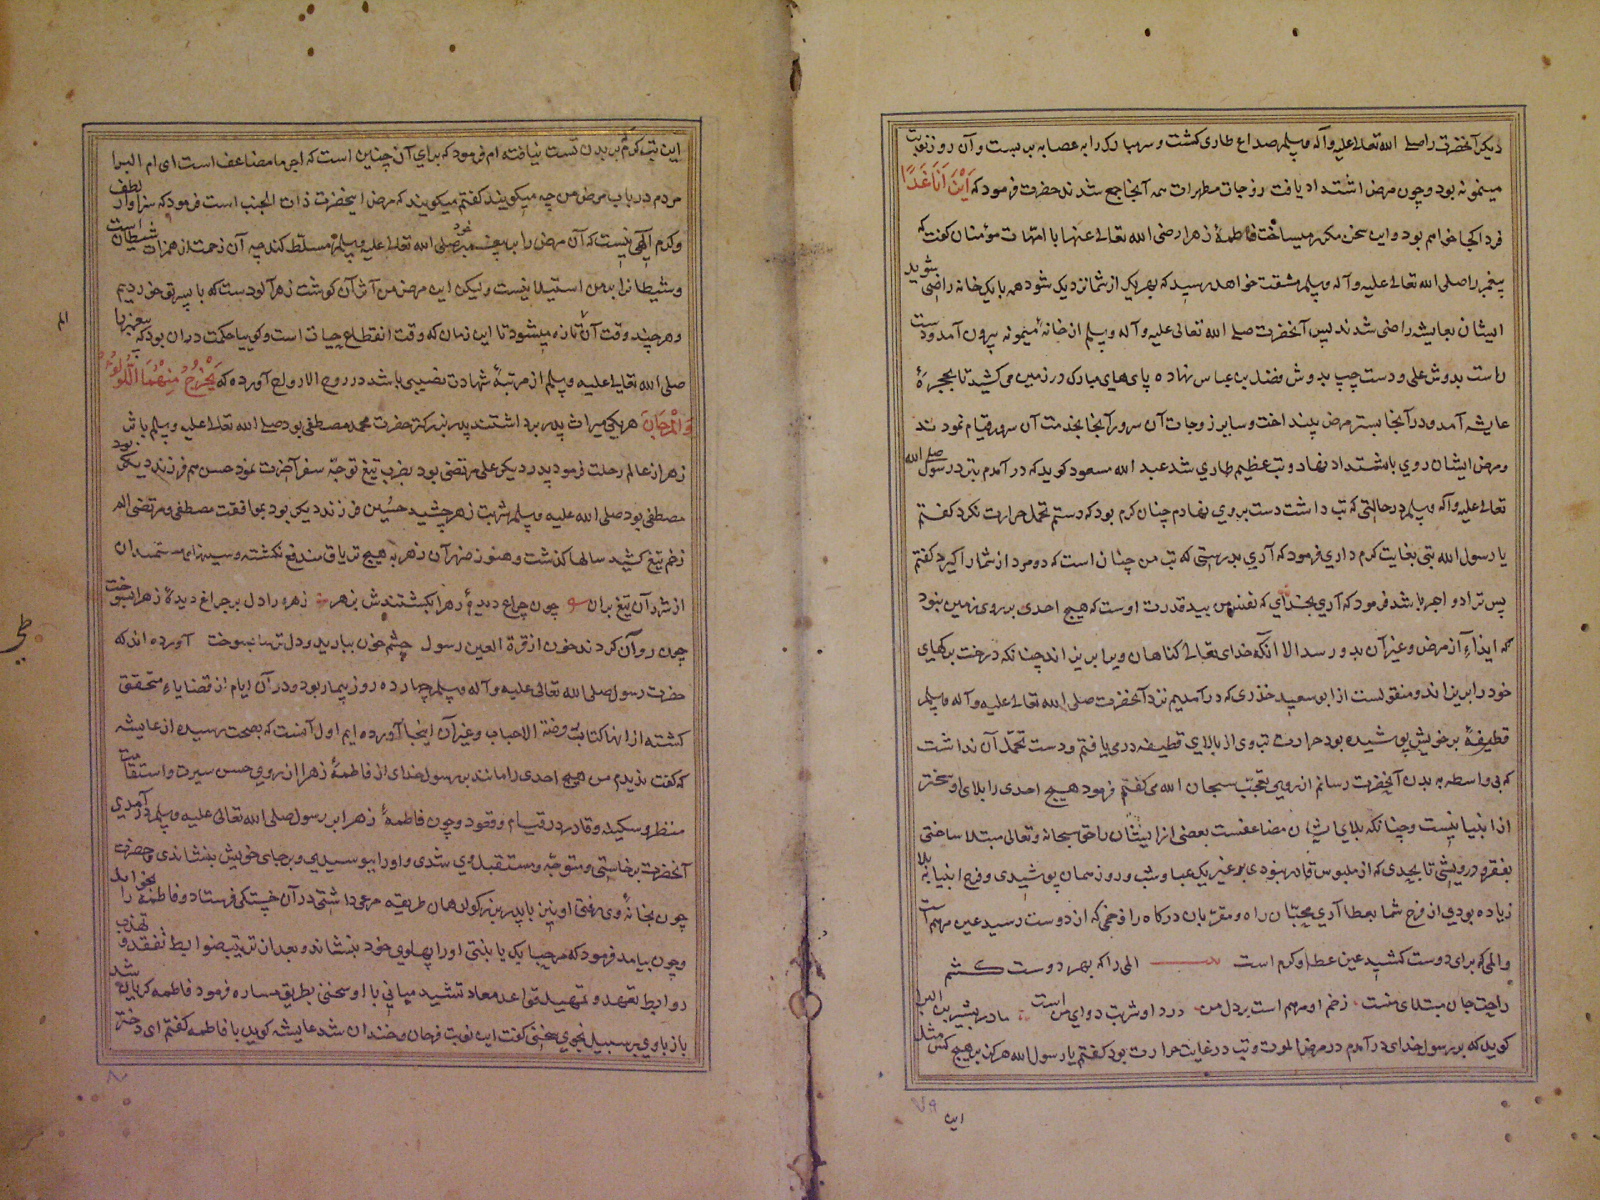 دیکر آنحضرت را صلی الله تعالی علیه وآله وسلم صداع طاری کشت و سر مبارک را به عصابه بر بست و آن روز نوبت
میمونه بود و چون مرض اشتداد یافت زوجات مطهرات همه آنجا جمع شدند حضرت فرمود که اَیْنَ اَنَا غَدًا
فردا کجا خواهم بود و این سخن مکرر میساخت فاطمهٔ زهرا رضی الله تعالی عنها با امهات مؤمنان کفت که
پیغمبر را صلی الله تعالی علیه وآله وسلم مشقت خواهد رسید که بهر یک از شما نزدیک شود همه با یک خانه راضی شوید
ایشان بعایشه راضی شدند پس آنحضرت صلی الله تعالی علیه وآله وسلم از خانهٔ میمونه بیرون آمد و دست
راست بدوش علی و دست چپ بدوش فضل بن عباس نهاده پای های مبارک در زمین می کشید تا بحجرهٔ
عایشه آمد و در آنجا بستر مرض بینداخت و سایر زوجات آن سرور آنجا بخدمت آن سرور قیام نمودند
و مرض ایشان روی باشتداد نهاد و تب عظیم طاری شد عبد الله مسعود کوید که در آمدم بر رسول صلی الله
تعالی علیه وآله وسلم در حالتی که تب داشت دست بر وی نهادم چنان کرم بود که دستم تحمل حرارت نکرد کفتم
یا رسول الله تبی بغایت کرم داری فرمود که آری بدرستی که تب من چنان است که دو مرد از شما را کیرد کفتم
پس ترا دو اجر باشد فرمود که آری بخدای که نفس من بید قدرت اوست که هیچ احدی بر روی زمین نبود
که ایذاء از مرض و غیر آن بدو رسد الا انکه خدای تعالی کناهان ویرا بریزاند چنانکه درخت برکهای
خود را بریزاند و منقولست از ابو سعید خذری که در آمدیم نزد آنحضرت صلی الله تعالی علیه وآله وسلم
قطیفهٔ بر خویش پوشیده بود حرارت تب وی از بالای قطیفه در می یافتم و دست تحمل آن نداشت
که بی واسطه به بدن آنحضرت رسانم از روی تعجب سبحان الله می کفتم فرمود هیچ احدی را بلای او سختر
از انبیا نیست و چنانکه بلای ایشان مضاعفست بعضی از ایشان را حق سبحانه وتعالی مبتلا ساختی
بفقر و درویشی تا بحدی که از ملبوس قادر نبودی بر غیر یک عبا و شب و روز همان پوشیدی و فرح انبیا به بلا
زیاده بودی از فرح شما بعطا آری محبان راه و مقربان درکاه را زخمی که از دوست رسید عین مرهم است
والمی که برای دوست کشید عین عطا و کرم است المی را که بهر دوست کشم
راحت جان مبتلای منست زخم او مرهم است بر دل من درد او شربت دوای من است مادر بشیر بن البرا
کوید که بر رسول خدای در آمدم در مرض الموت و تب در غایت حرارت بود کفتم یا رسول الله هرکز بر هیچ کس مثل
این
این تب کرم بر بدن تست نیافته ام فرمود که برای آن چنین است که اجر ما مضاعف است ای ام البرا
مردم در باب مرض من چه میکویند کفتم میکویند که مرض آنحضرت ذات الجنب است فرمود که سزاوار بلطف
وکرم الهی نیست که آن مرض را بر پیغمبر خود صلی الله تعالی علیه وسلم مسلط کند چه آن زحمت از همزات شیطان است
و شیطان را بر من استیلا نیست ولیکن این مرض من آثر آن کوشت زهر آلودست که با پسر تو خوردیم
و هر چند وقت آن تازه میشود تا این زمان که وقت انقطاع حیات است و کوییا حکمت در ان بود که پیغمبر ما
صلی الله تعالی علیه وسلم از مرتبهٔ شهادت نصیبی باشد در روح الارواح آورده که یَخْرُجُ مِنْهُمَا اللُّؤْلُؤُ
وَالْمَرْجَانُ هر یکی میراث پدر برداشتند پدر بزرکتر حضرت محمد مصطفی بود صلی الله تعالی علیه وسلم باثر
زهر از عالم رحلت فرمود پدر دیکر علی مرتضی بود بضرب تیغ توجه سفر آخرت نمود حسن هم فرزند دیکر بود
مصطفی بود صلی الله علیه وسلم شربت زهر چشید حسین فرزند دیکر بود بموافقت مصطفی و مرتضی الم
زخم تیغ کشید سالها کذشت و هنوز ضرر آن زهر به هیچ تریاق مندفع نکشته وسینهای مستمندان
چون چراغ دیدهٔ زهرا بکشتندش بزهر زهره را دل بر چراغ دیدهٔ زهرا بسوخت
چون روان کردند خون از قرة العین رسول چشم خون بارید و دل بسوخت آورده اند که
حضرت رسول صلی الله تعالی علیه وآله وسلم چهارده روز بیمار بود و در آن ایام از قضایاء متحقق
کشته از انها کتابت روضة الاحباب وغیر آن اینجا آورده ایم اول آنست که بصحت رسیده از عایشه
که کفت ندیدم من هیچ احدی را مانند بر رسول خدای از فاطمهٔ زهرا از روی حسن سیرت و استقامت
منظر و سکینه و قار در قیام و قعود و چون فاطمهٔ زهرا بر رسول صلی الله تعالی علیه وسلم در آمدی
آنحضرت برخاستی و متوجه و مستقبل وی شدی و او را ببوسیدی و بر جای خویش بنشاندی و حضرت
چون بخانهٔ وی رفتی او نیز با پدر بزرکوار همان طریقه مرعی داشتی در آن خستکی فرستاد و فاطمه را بخواند
و چون بیامد فرمود که مرحبا بک یا بنتی او را پهلوی خود بنشاند و بعد از ترتیب ضوابط تفقد و
روابط تعهد و تمهید قواعد معاد تشیید مبانی با او سخنی بطریق مساره فرمود فاطمه کریان شد
باز با وی بر سبیل نجوی سخنی کفت این نوبت فرحان و خندان شد عایشه کوید با فاطمه کفتم ای دختر